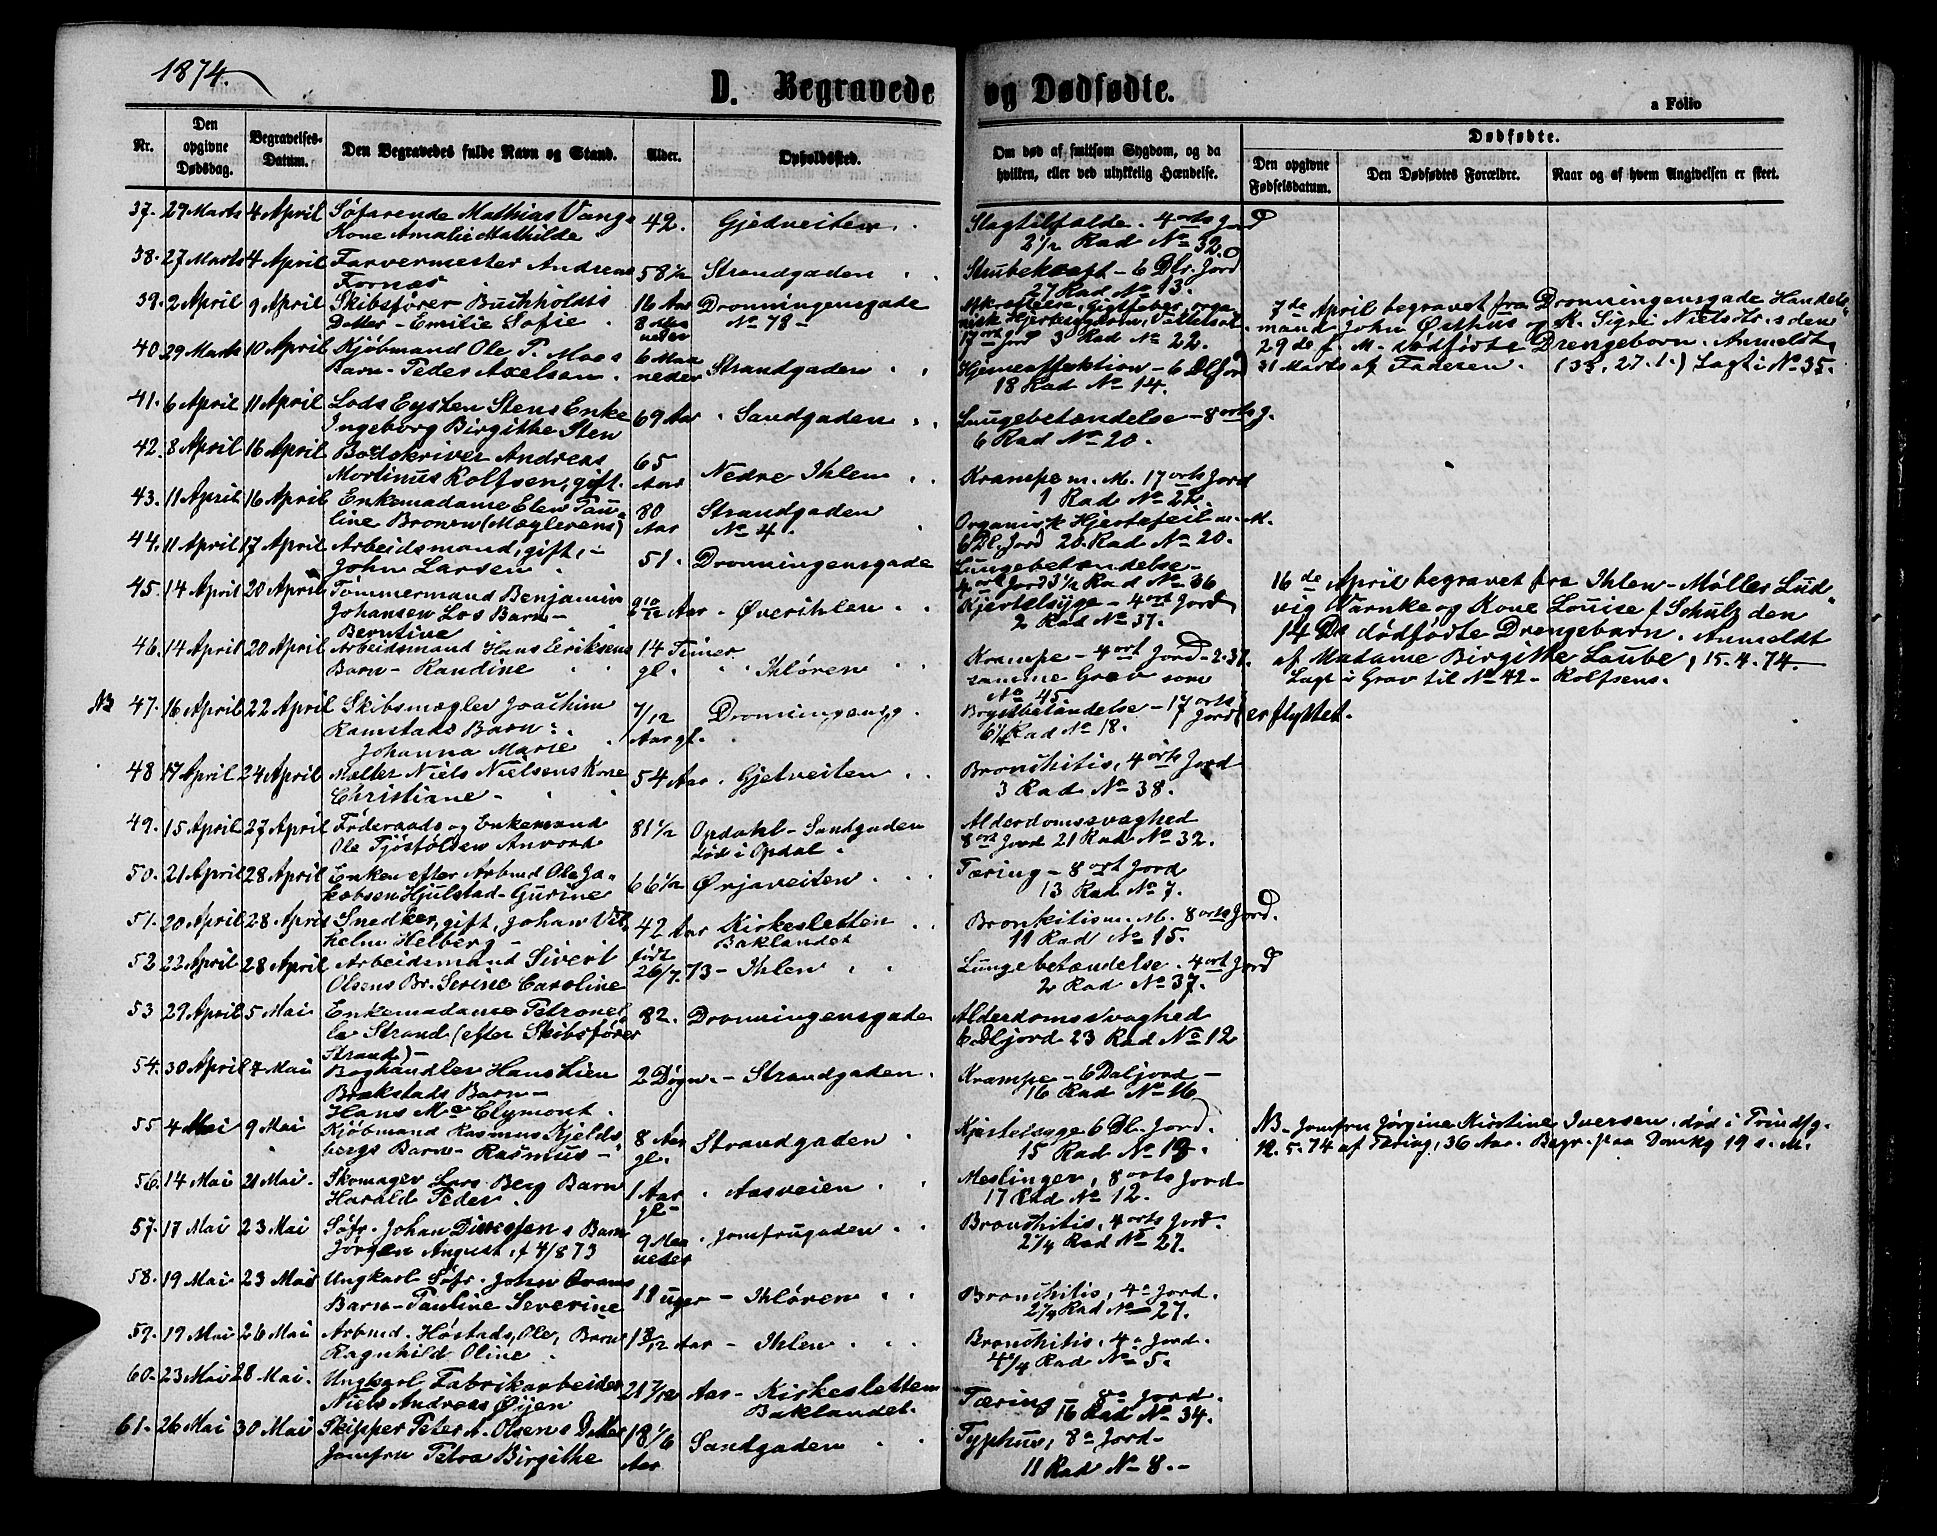 1874.
D. Begravede og Dødfødte.
a Folio
Nr.
Den opgivne Dødsdag.
Begravelses-Datum.
Den Begravedes fulde Navn og Stand.
Alder.
Opholdssted.
Om død af smitsom Sygdom, og da hvilken, eller ved ulykkelig Hændelse.
Dødfødte.
Den opgivne Fødselsdatum.
Den Dødfødtes Forældre.
Naar og af hvem Angivelsen er skeet.
37. 29 Marts 4 April Søfarende Mathias Vangs 42. Gjedveiten Slagtilfælde. 4 orts Jord
Kone Amalie Mathilde 2 1/2 Rad No 32.
38. 27 Marts 4 April Farvermester Andreas 58 1/2 Strandgaden Strubekræft - 6 Dlr. Jord
Fornæs 27 Rad No 13.
39. 2 April 9 April Skibsfører Buchholdts 16 Aar Dronningensgade
Datter - Emilie Sofie 8 Maaneder No 78 - 3 Rad No 22.
7de April begravet fra Dronningensgade Handels"
mand John Østhus og K. Sigri Nielsdr. s den
29de f. M. dødfødte Drengebarn. Anmeldt
31 Marts af Faderen. (35. 27. 1.) Lagt i No 35.
40. 29 Marts 10 April Kjøbmand Ole P. Moes 6 Maaneder Strandgaden Hjerneaffektion - 6 Dl Jord
Barn - Peder Axelsen. 18 Rad No 14.
41. 6 April 11 April Lods Eysten Stens Enke 69 Aar Sandgaden Lungebetændelse - 8 orts J.
Ingeborg Birgitte Sten 6 Rad No 20.
42. 8 April 16 April Bødskriver Andreas 65 Aar Nedre Ihlen Krampe m. M. 17 orts Jord
Mortinus Rolfsen, gift. 1 Rad No 22.
43. 11 April 16 April Enkemadame Elen Pau- 80 Aar Strandgaden Organisk Hjertefeil m. M.
line Broner (Mæglerens) No 4. 6 Dl. Jord 20. Rad No 20.
44. 11 April 17 April Arbeidsmand, gift, - 51. Dronningensgade Lungebetændelse -
John Larsen 4 ort Jord 3 1/2 Rad No 36
45. 14 April 20 April Tømmermand Benjamin 2 10/12 Aar - Øvreihlen Kjertelsyge - 4 ort Jord
Johansen Los Barn - 2 Rad No 37.
Berntine
16de April begravet fra Ihlen - Møller Lud"
vig Varnke og Kone Louise f. Schulz den
14 Ds dødfødte Drengebarn. Anmeldt
af Madame Birgitte Laube, 15.4.74.
Lagt i Grav til No 42 - Rolfsens.
46. 14 April 20 April Arbeidsmand Hans Eriksens 14 Timer gl. Ihløren Krampe - 4 ort Jord - 2. 37.
Barn - Randine samme Grav som
No 45
NB 47. 16 April 22 April Skibsmægler Joachim 7/12 Aar gl. Dronningensg. Brystbetændelse - 17 orts Jord (er flyttet.
Ramstads Barn: 6 1/4 Rad No 18.
Johanna Marie
48 17 April 24 April Mælter Niels Nielsens Kone 54 Aar. Gjetveiten Bronchitis, 4 orts Jord
Christiane - 3 Rad No 38.
49. 15 April 27 April Føderaads og Enkemand 81 1/2 Opdahl - Sandgaden Alderdomssvaghed
Ole Tjøstolsen Anvord død i Opdal. 8 ort Jord 21 Rad No 32.
50. 21 April 28 April Enken efter Arbmd Ole Ja- 66 1/2 Ørjaveiten Tæring - 8 ort Jord
kobsen Hjulstad - Gurine 13 Rad No 7.
51. 20 April 28 April Snedker, gift, Johan Vil- 42 Aar Kirkesletten Bronkitis m. M. 8 orts Jord.
helm Helberg - Baklandet 11 Rad No 15.
52 22 April 28 April Arbeidsmand Sivert født 26/7. 73 - Ihlen Lungebetændelse. 4 ort Jord
Olsens Br. Serine Caroline 2 Rad No 37.
53 29 April 5 Mai Enkemadame Petronel- 82. Dronningensgade Alderdomssvaghed
la Strand (efter Skibsfører 6 Dljord 23 Rad No 12
Strand) -
54. 30 April 7 Mai Boghandler Hans Lien 2 Døgn. - Strandgaden. Krampe - 6 Daljord -
Brækstads Barn - 16 Rad No 16
Hans Mc Clymont.
55 4 Mai 9 Mai Kjøbmand Rasmus Kjelds- 8 Aar gl. Strandgaden Kjertelsyge 6 Dl. Jord.
bergs Barn - Rasmus - 15 Rad No 19.
NB. Jomfru Jørgine Kirstine Iversen. død i Trindfg.
12. 5. 74 af Tæring, 36 Aar. Begr. paa Domkg 19 s. M.
56. 14 Mai 21 Mai. Skomager Lars Berg Barn 1 Aar gl - Aasveien Meslinger, 8 orts Jord
Harald Peder. 17 Rad No 12.
57. 17 Mai 23 Mai Søfr. Johan Diresens Barn 9 Maaneder Jomfrugaden Bronchitis, 4 orts Jord.
Jørgen August, f 4/8 73 2 1/4 Rad No 27.
58. 19 Mai 23 Mai Ungkarl Søfr. John 11 uger - Ihløren Bronchitis, 4 o Jord.
Barn - Pauline Severine 2 1/4 Rad No 27.
59. 19 Mai 26 Mai Arbmd. Høstads, Ole, Barn 1 3/12 Aar - Ihlen Bronchitis, 4 o Jord.
Ragnhild Oline 4 1/4 Rad No 5.
60. 23 Mai 28 Mai. Ungkarl Fabrikarbeider 21 7/12 Aar - Kirkesletten Tæring - 8 o Jord.
Niels Andreas Øijen Baklandet. 16 Rad No 34.
61. 26 Mai 30 Mai Skipper Peter A. Olsens Datter 18 1/6 Aar Sandgaden Typhus, 8 o Jord -
Jomfru Petra Birgithe 11 Rad No 8. -